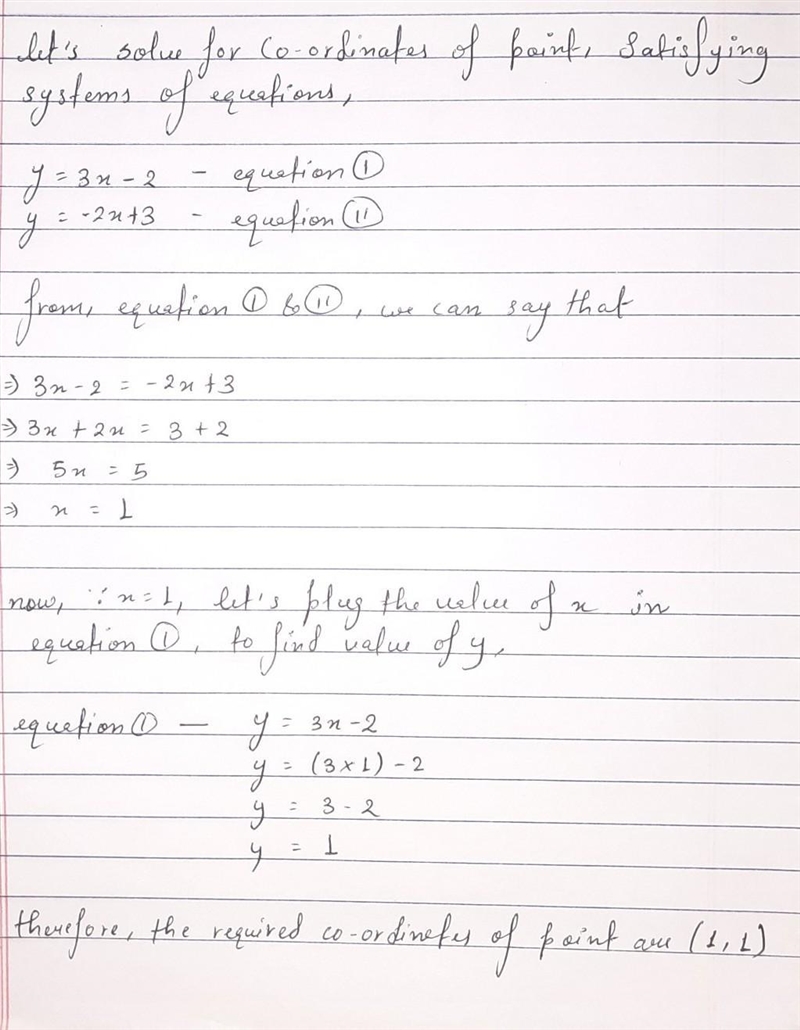 let's solve for co-ordinates of point, satisfying
systems of equations,
y = 3x - 2 - equation ①
y = -2x+3 - equation ⑪
from, equation ① & ⑪, we can say that
⇒ 3x - 2 = -2x + 3
⇒ 3x + 2x = 3 + 2
⇒ 5x = 5
⇒ x = 1
now, ∵ x = 1, let's plug the value of x in
equation ①, to find value of y,
equation ① — y = 3x - 2
y = (3×1) - 2
y = 3 - 2
y = 1
therefore, the required co-ordinates of point are (1,1)